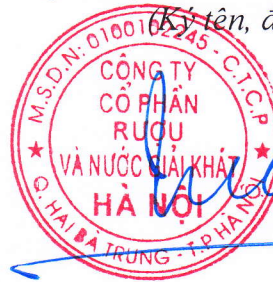 (Ký tên, đ
M.S.D.N: 0100102245 - C.T.C.P
CÔNG TY
CỔ PHẦN
RƯỢU
VÀ NƯỚC GIẢI KHÁT
HÀ NỘI
Q. HAI BÀ TRƯNG - T.P HÀ NỘI